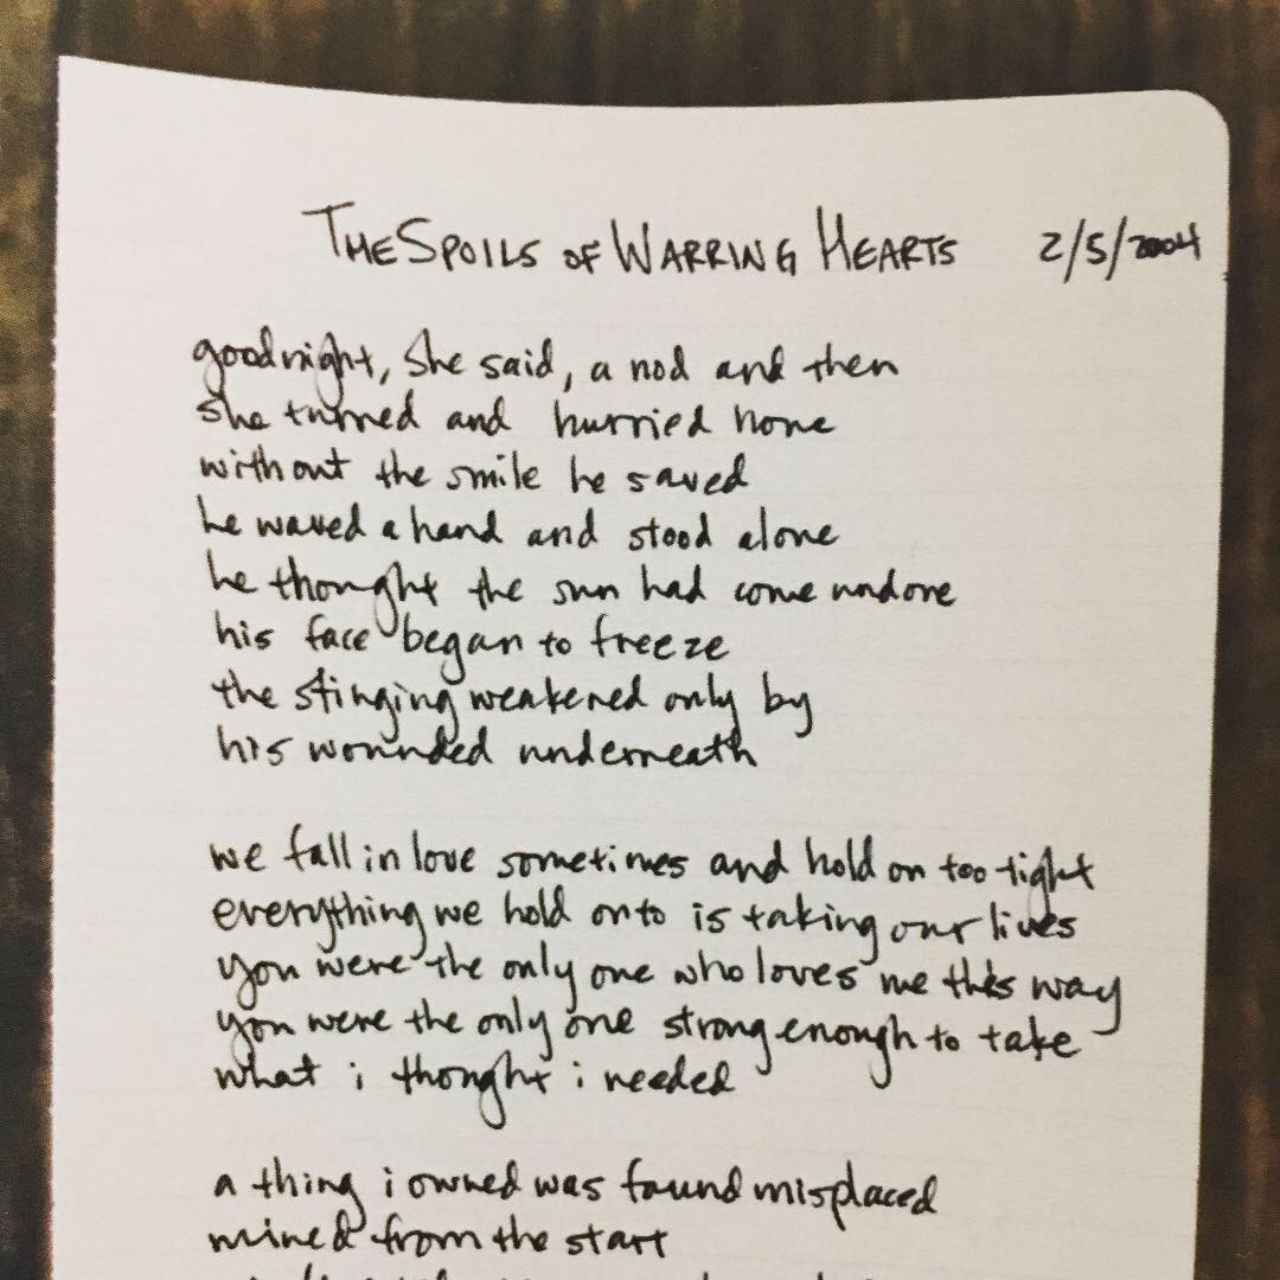 THE SPOILS OF WARRING HEARTS 2/5/2004
goodnight, she said, a nod and then
she turned and hurried home
without the smile he saved
he waved a hand and stood alone
he thought the sun had come undone
his face began to freeze
the stinging weakened only by
his wounded underneath
we fall in love sometimes and hold on too tight
everything we hold onto is taking our lives
you were the only one who loves me this way
you were the only one strong enough to take
what i thought i needed
a thing i owned was found misplaced
mined from the start